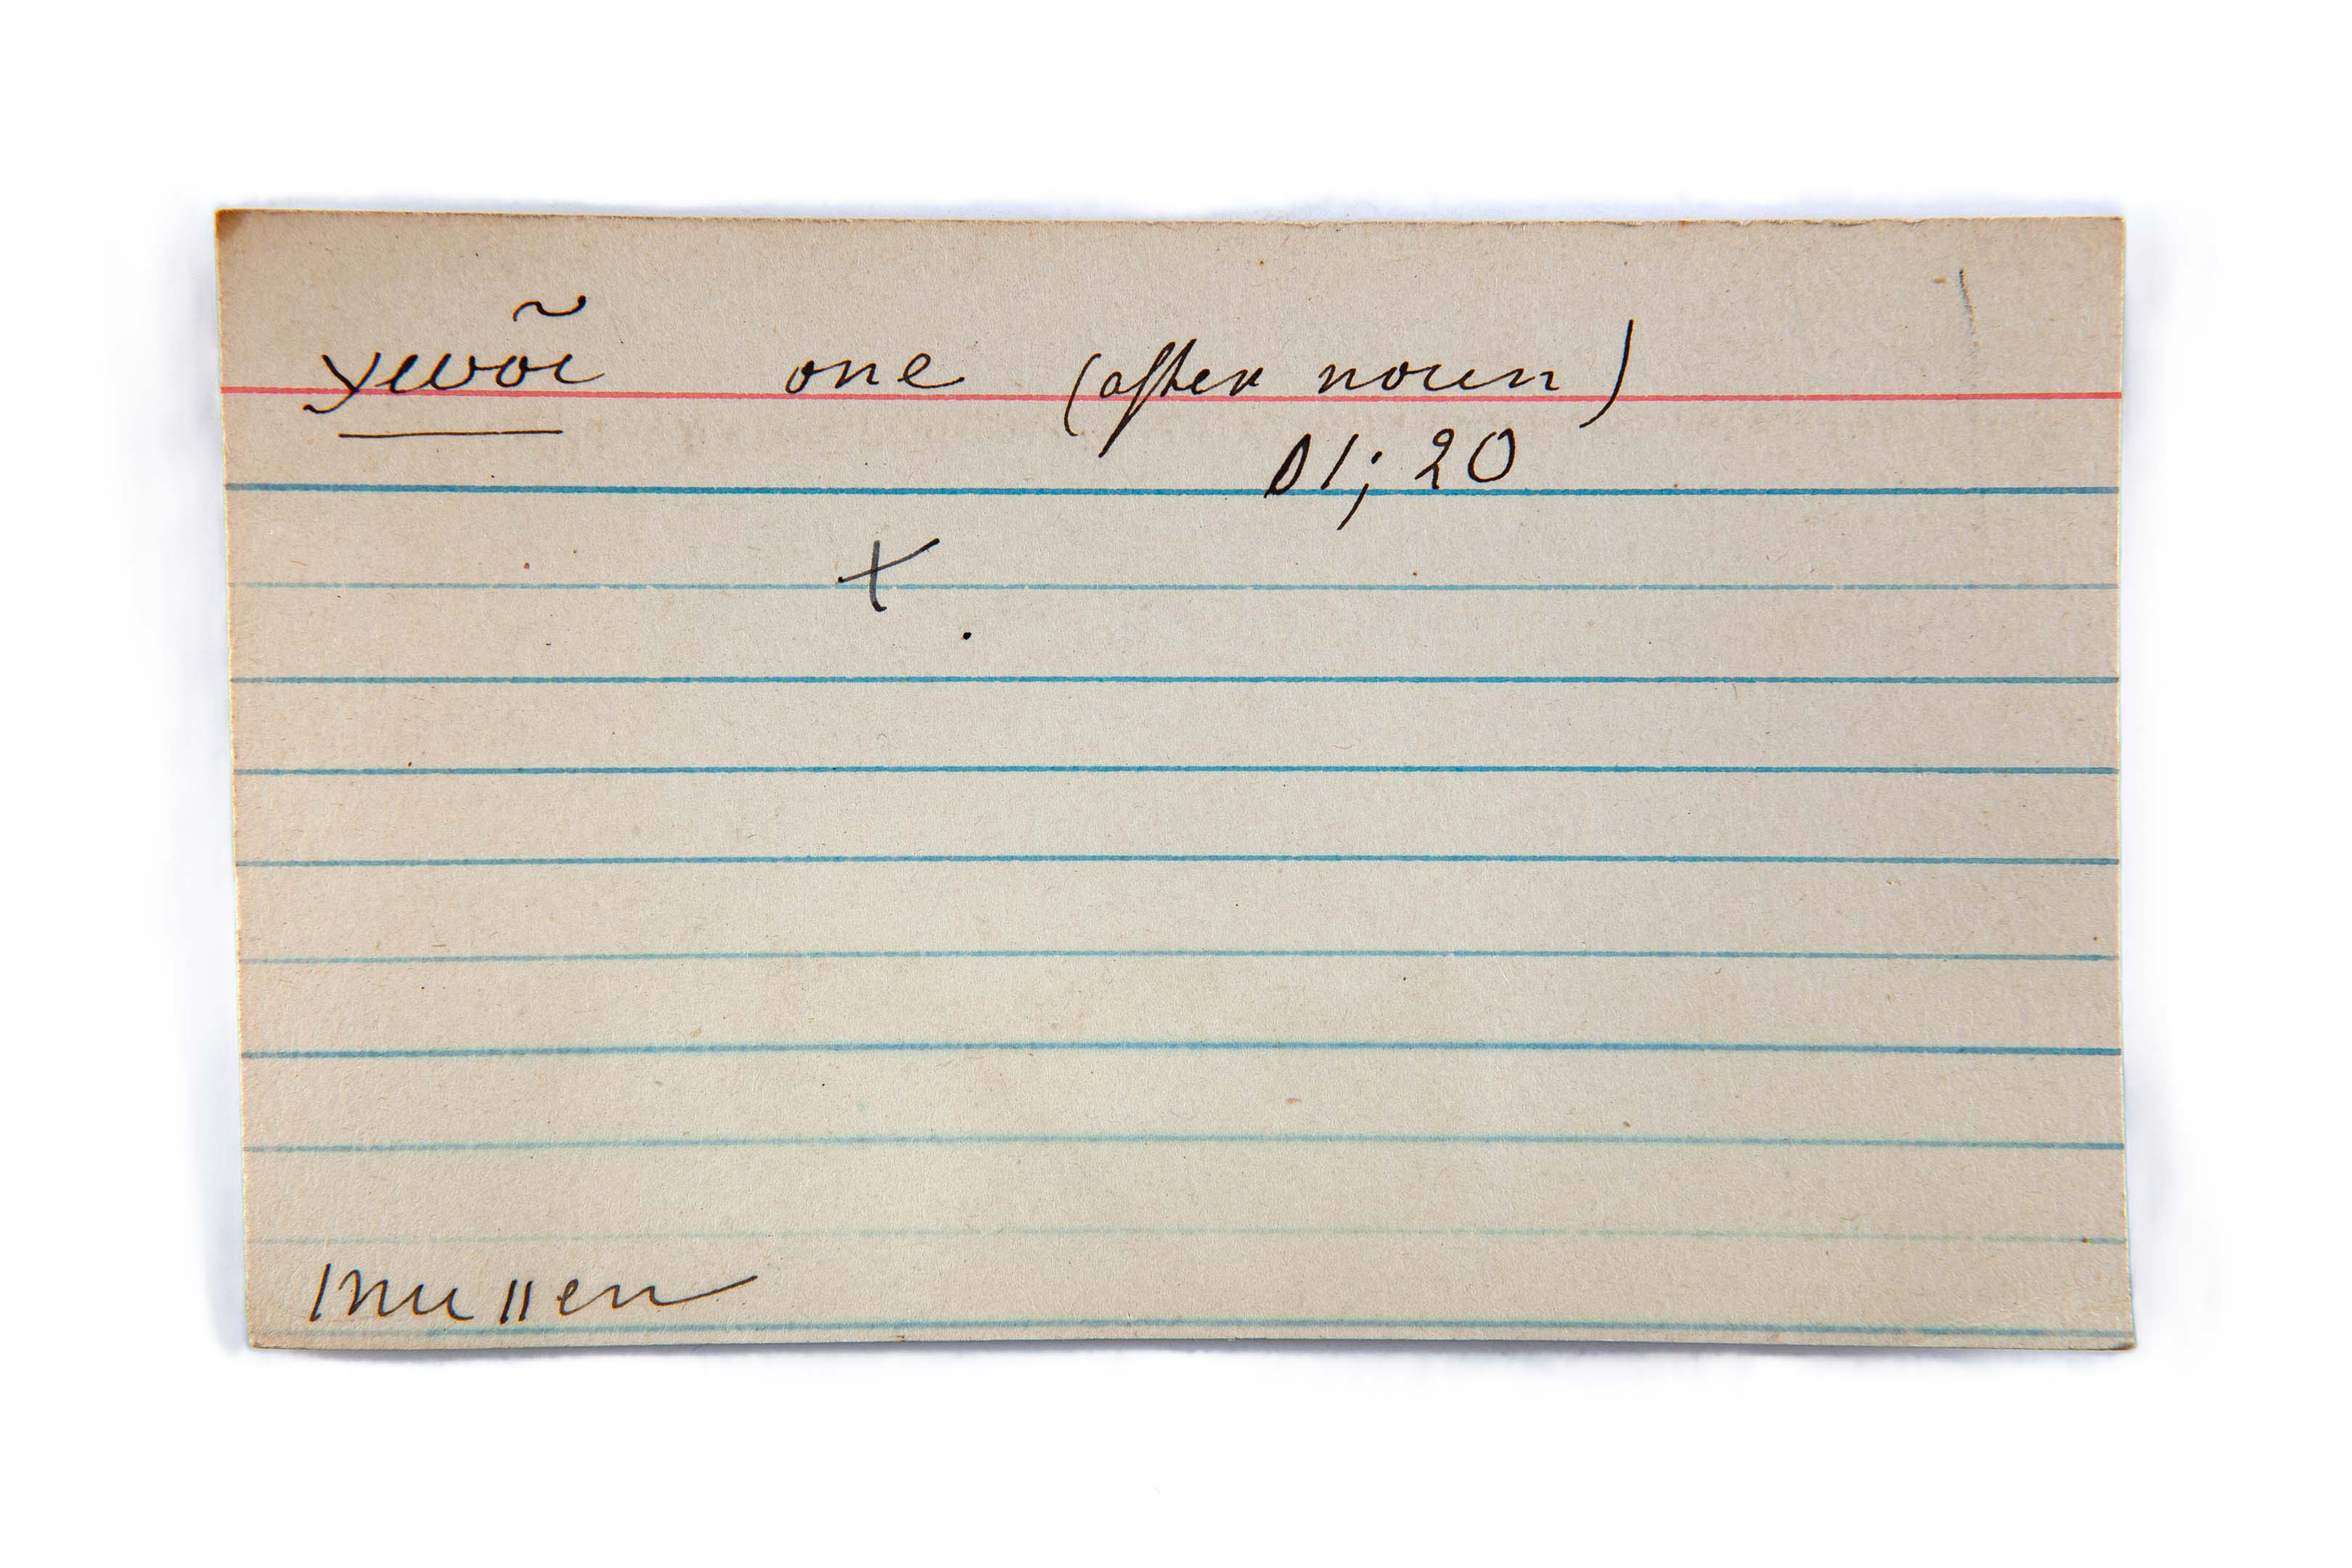 yewõi one (after noun)
D1; 20
x
Mullen